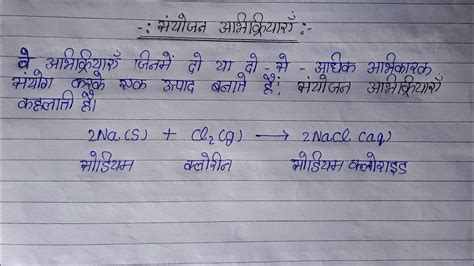 -: संयोजन अभिक्रियाएँ :-
वे अभिक्रियाएँ जिनमें दो या दो - से - अधिक अभिकारक
संयोग करके एक उत्पाद बनाते हैं; संयोजन अभिक्रियाएँ
कहलाती हैं।
2Na(S) + Cl₂(g) → 2NaCl (aq)
सोडियम क्लोरीन सोडियम क्लोराइड